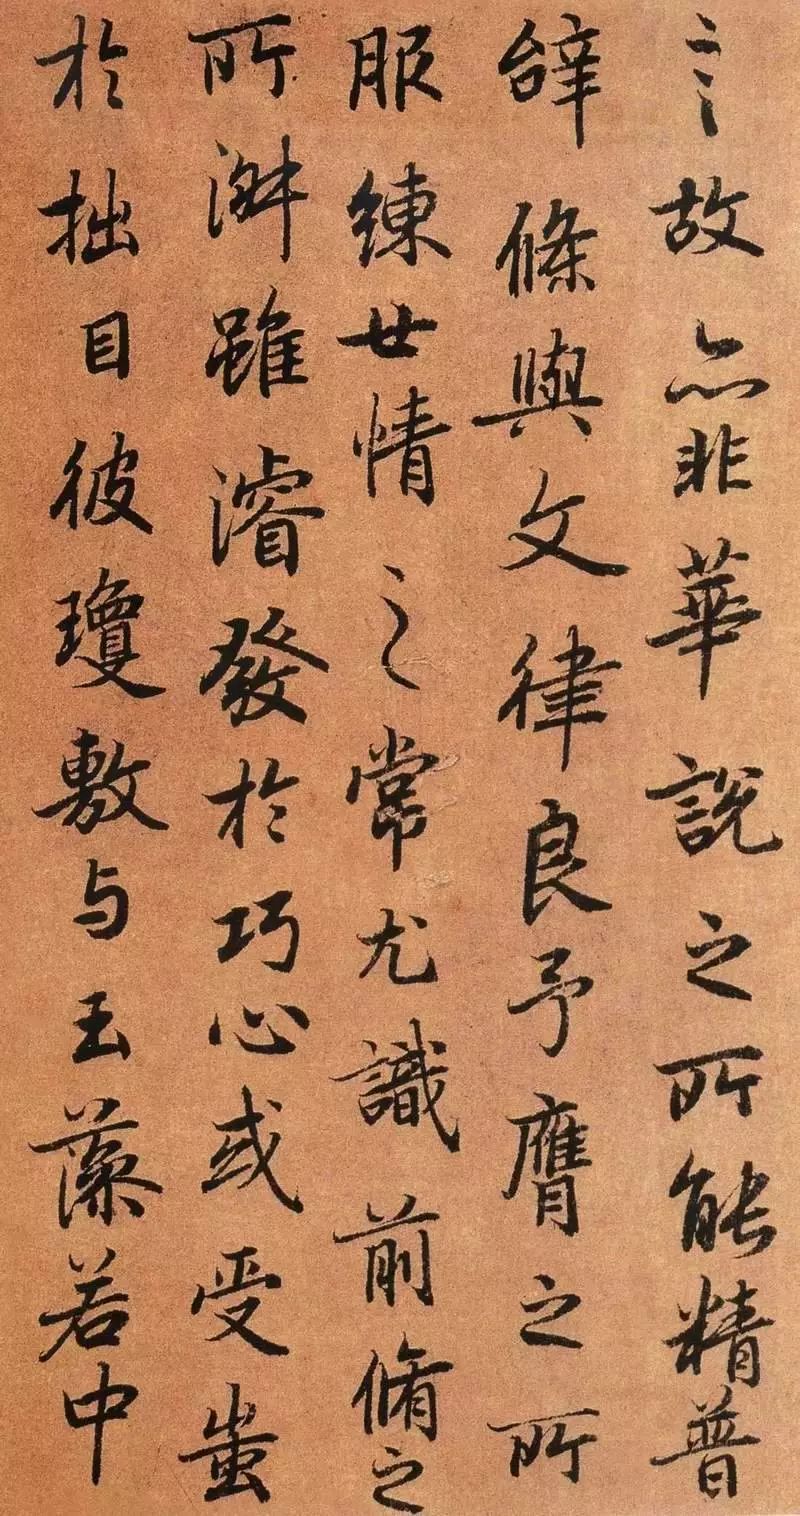 言故亦非華說之所能精普
辭條與文律良予膺之所
服練世情之常尤識前脩之
所淑雖濬發於巧心或受蚩
於拙目彼瓊敷与玉藻若中